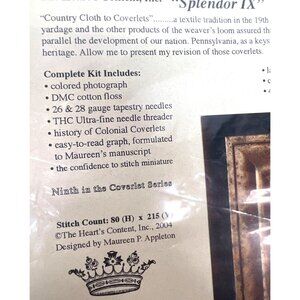 "Splendor IX"
"Country Cloth to Coverlets"........a textile tradition in the 19th
yardage and the other products of the weaver's loom assured th
parallel the development of our nation. Pennsylvania, as a keys
heritage. Allow me to present my revision of those coverlets.
Complete Kit Includes:
• colored photograph
• DMC cotton floss
• 26 & 28 gauge tapestry needles
• THC Ultra-fine needle threader
• history of Colonial Coverlets
• easy-to-read graph, formulated
to Maureen's manuscript
• the confidence to stitch miniature
Ninth in the Coverlet Series
Stitch Count: 80 (H) x 215
©The Heart's Content, Inc., 2004
Designed by Maureen P. Appleton